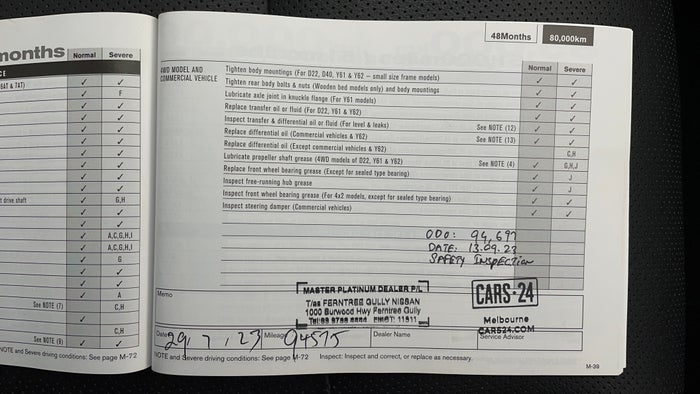 months
Normal Severe
6AT & 7AT)
F
t drive shaft
G,H
A,C,G,H,I
A,C,G,H,I
G
A
See NOTE (7)
C,H
C,H
See NOTE (9)
NOTE and Severe driving conditions: See page M-72
48Months 80,000km
Normal Severe
4WD MODEL AND
COMMERCIAL VEHICLE
Tighten body mountings (For D22, D40, Y61 & Y62 - small size frame models) ✓ ✓
Tighten rear body bolts & nuts (Wooden bed models only) and body mountings ✓ ✓
Lubricate axle joint in knuckle flange (For Y61 models) ✓ ✓
Replace transfer oil or fluid (For D22, Y61 & Y62) ✓ ✓
Inspect transfer & differential oil or fluid (For level & leaks) See NOTE (12) ✓ ✓
Replace differential oil (Commercial vehicles & Y62) See NOTE (13) ✓ ✓
Replace differential oil (Except commercial vehicles & Y62) C,H
Lubricate propeller shaft grease (4WD models of D22, Y61 & Y62) See NOTE (4) ✓ G,H,J
Replace front wheel bearing grease (Except for sealed type bearing) ✓ J
Inspect free-running hub grease ✓ J
Inspect front wheel bearing grease (For 4x2 models, except for sealed type bearing) ✓ ✓
Inspect steering damper (Commercial vehicles) ✓ ✓
ODO: 94,697
DATE: 13.09.23
SAFETY INSPECTION
Memo
MASTER PLATINUM DEALER P/L
T/as FERNTREE GULLY NISSAN
1000 Burwood Hwy Ferntree Gully
CARS·24
Melbourne
CARS24.COM
Date 29, 7, 23 Mileage 94575 Dealer Name Service Advisor
NOTE and Severe driving conditions: See page M-72 Inspect: Inspect and correct, or replace as necessary.
M-39